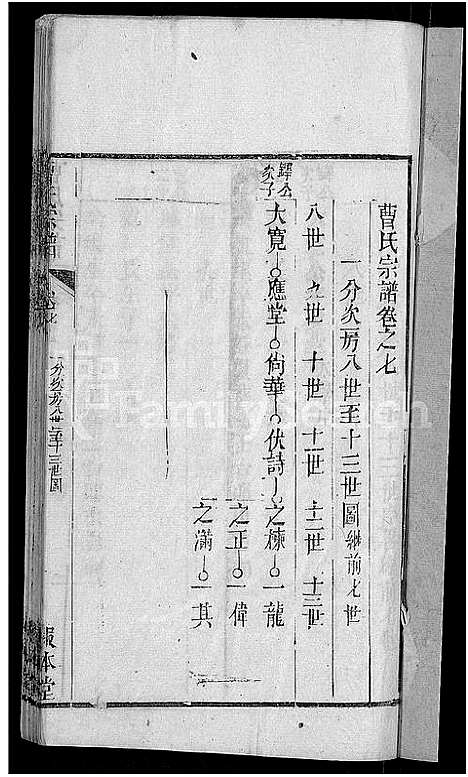 曹氏宗譜卷之七
一分次房八世至十三世圖繼前七世
八世 九世 十世 十一世 十二世 十三世
鐸公次子
大寬 應堂 尙華 伏詩 之棟 一龍
之正 一偉
之滿 一其
氏宗譜
卷七
一分次房八世至十三世圖
報本堂
FamilySearch